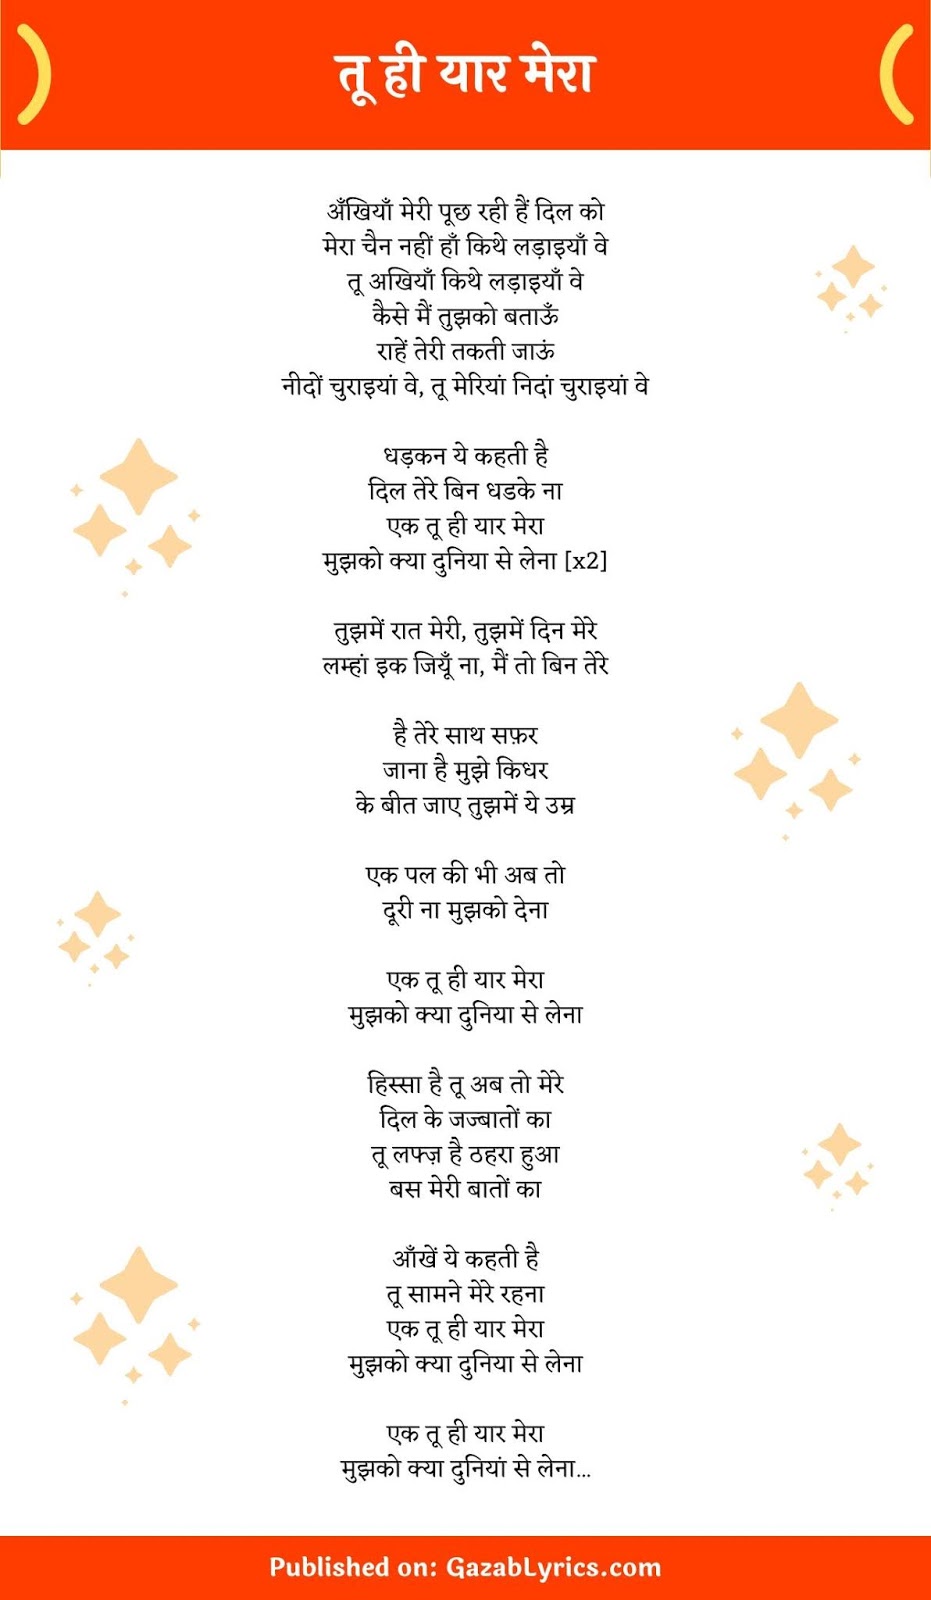 तू ही यार मेरा
अँखियाँ मेरी पूछ रही हैं दिल को
मेरा चैन नहीं हाँ किथे लड़ाइयाँ वे
तू अखियाँ किथे लड़ाइयाँ वे
कैसे मैं तुझको बताऊँ
राहें तेरी तकती जाऊं
नीदों चुराइयां वे, तू मेरियां निदां चुराइयां वे
धड़कन ये कहती है
दिल तेरे बिन धडके ना
एक तू ही यार मेरा
मुझको क्या दुनिया से लेना [x2]
तुझमें रात मेरी, तुझमें दिन मेरे
लम्हां इक जियूँ ना, मैं तो बिन तेरे
है तेरे साथ सफ़र
जाना है मुझे किधर
के बीत जाए तुझमें ये उम्र
एक पल की भी अब तो
दूरी ना मुझको देना
एक तू ही यार मेरा
मुझको क्या दुनिया से लेना
हिस्सा है तू अब तो मेरे
दिल के जज्बातों का
तू लफ्ज़ है ठहरा हुआ
बस मेरी बातों का
आँखें ये कहती है
तू सामने मेरे रहना
एक तू ही यार मेरा
मुझको क्या दुनिया से लेना
एक तू ही यार मेरा
मुझको क्या दुनियां से लेना...
Published on: GazabLyrics.com